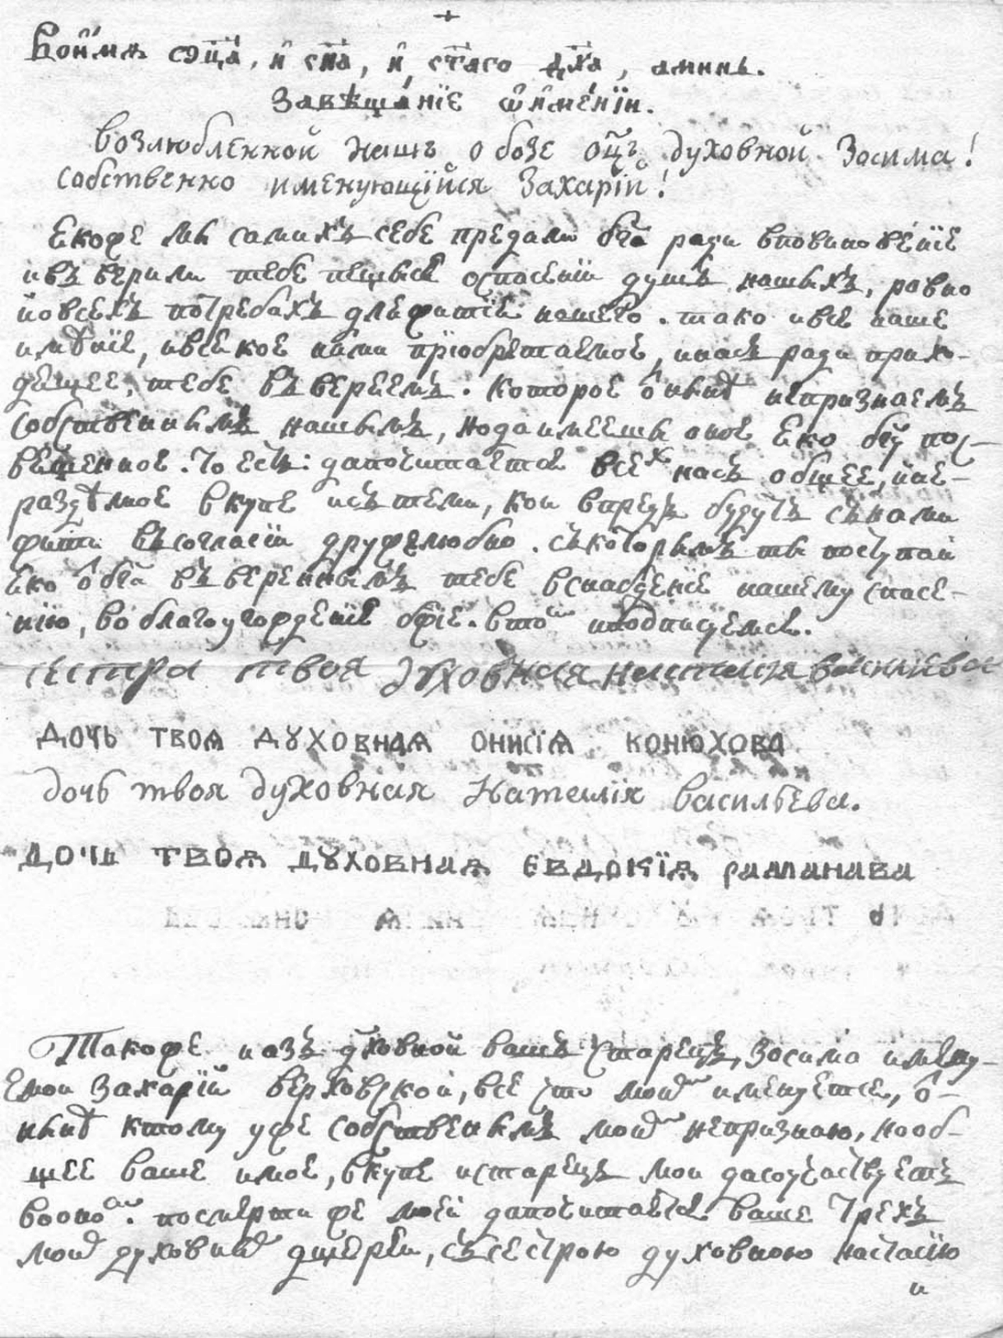 +
Во и́мѧ ѻц҃а́, и҆ сн҃а, и҆ ст҃аго дх҃а, аминь.
Завѣща́нїе ѡ҆ имѣ́нїи.
Возлюбленной нашъ о бозе оц҃ъ духовной Зосима!
собственно именующїйся Захарїй!
Ѧкоже мы самихъ себе предали бг҃а ради вповиновенїе
ивъверили тебе пещысѧ оспасенїи душъ нашыхъ, равно
ивовсехъ потребахъ длѧжитїѧ нашего. тако ивсе наше
имѣнїе, ивсѧкое нами прїобретаемое, инасъ ради прихо-
дѧщее, тебе въверѧемъ. которое ѿныне непризнаемъ
собственнымъ нашымъ, нода имеешы оное ѧко бг҃у пос-
вѧщенное. То есть: дапочитаетсѧ всех насъ общее, ине-
раздѣлное вкупе исътеми, кои впредь будутъ сънами
жити въсогласїи дружелюбно. съкоторымъ ты поступай
ѧко ѿ бг҃а въвереннымъ тебе вснабденїе нашему спасе-
нїю, во благоугожденїе бж҃їе. втом иподписуемсѧ.
сестра твоя духовная настасия васильева
дочь твоѧ духовнаѧ онисїѧ конюхова
дочь твоя духовная Наталия васильева.
дочи твоѧ духовнаѧ евдокїѧ раманава
Такоже иазъ духовной вашъ старецъ, Зосима имену-
емой Захарїй верховской, все что мое именуетсѧ, ѿ-
ныне ктому уже собственнымъ моим непризнаю, нооб-
щее ваше имое, вкупе истарецъ мой дасоучаствуетъ
вооном. посмерти же моей дапочитаетсѧ ваше Трехъ
моих духовных дщерей, съсестрою духовною настасїею
и